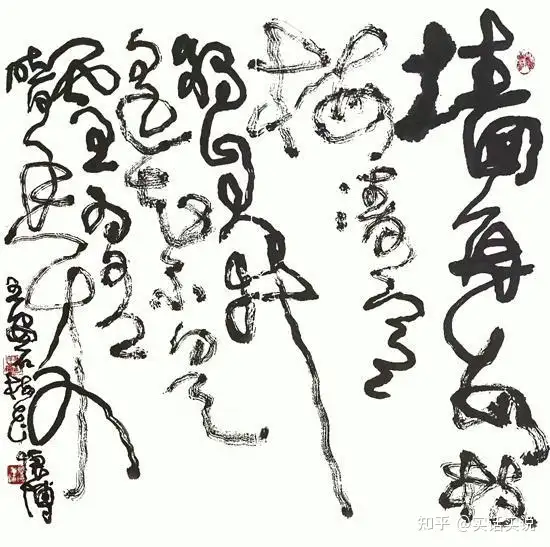 墙角数枝
梅凌寒
独自开
遥知不是
雪为有
暗香来
王安石梅花
知乎 @实话实说